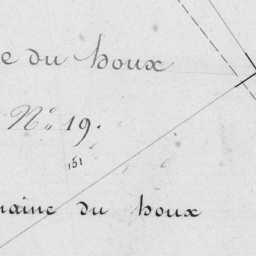 e du houx
No. 19.
151
maine du houx